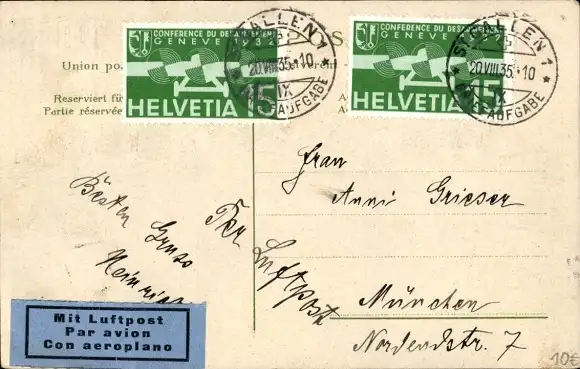 CONFERENCE DU DESARMEMENT
GENEVE 1932
HELVETIA 15
ST. GALLEN 1
20.VIII.35. 10
IX
BRIEFAUFGABE
CONFERENCE DU DESARMEMENT
GENEVE 1932
HELVETIA 15
ST. GALLEN 1
20.VIII.35. 10
IX
BRIEFAUFGABE
Union po
Reserviert fü
Partie réservée
Frau
Anni Grieser
München
Nordendstr. 7
Besten Gruss
Heinrich
Per Luftpost
Mit Luftpost
Par avion
Con aeroplano
10€